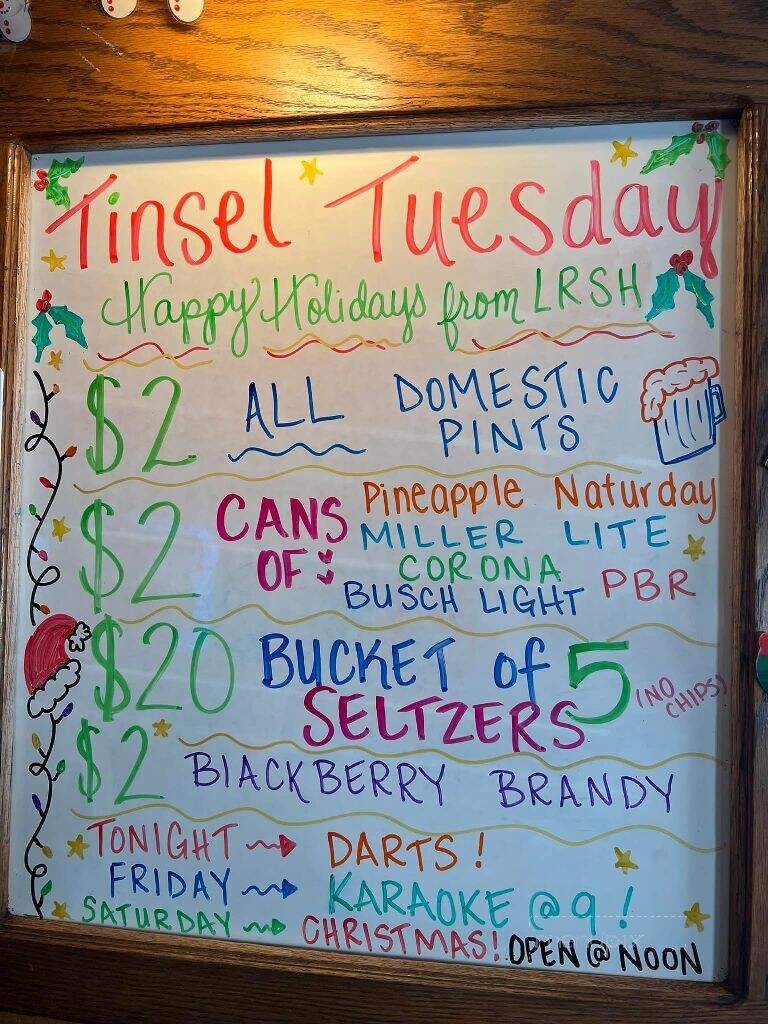 Tinsel Tuesday
Happy Holidays from LRSH
$2 ALL DOMESTIC PINTS
$2 CANS OF: Pineapple Naturday
MILLER LITE
CORONA
BUSCH LIGHT PBR
$20 BUCKET of 5
SELTZERS (NO CHIPS)
$2 BlACKBERRY BRANDY
TONIGHT DARTS!
FRIDAY KARAOKE @ 9!
SATURDAY CHRISTMAS! OPEN @ NOON